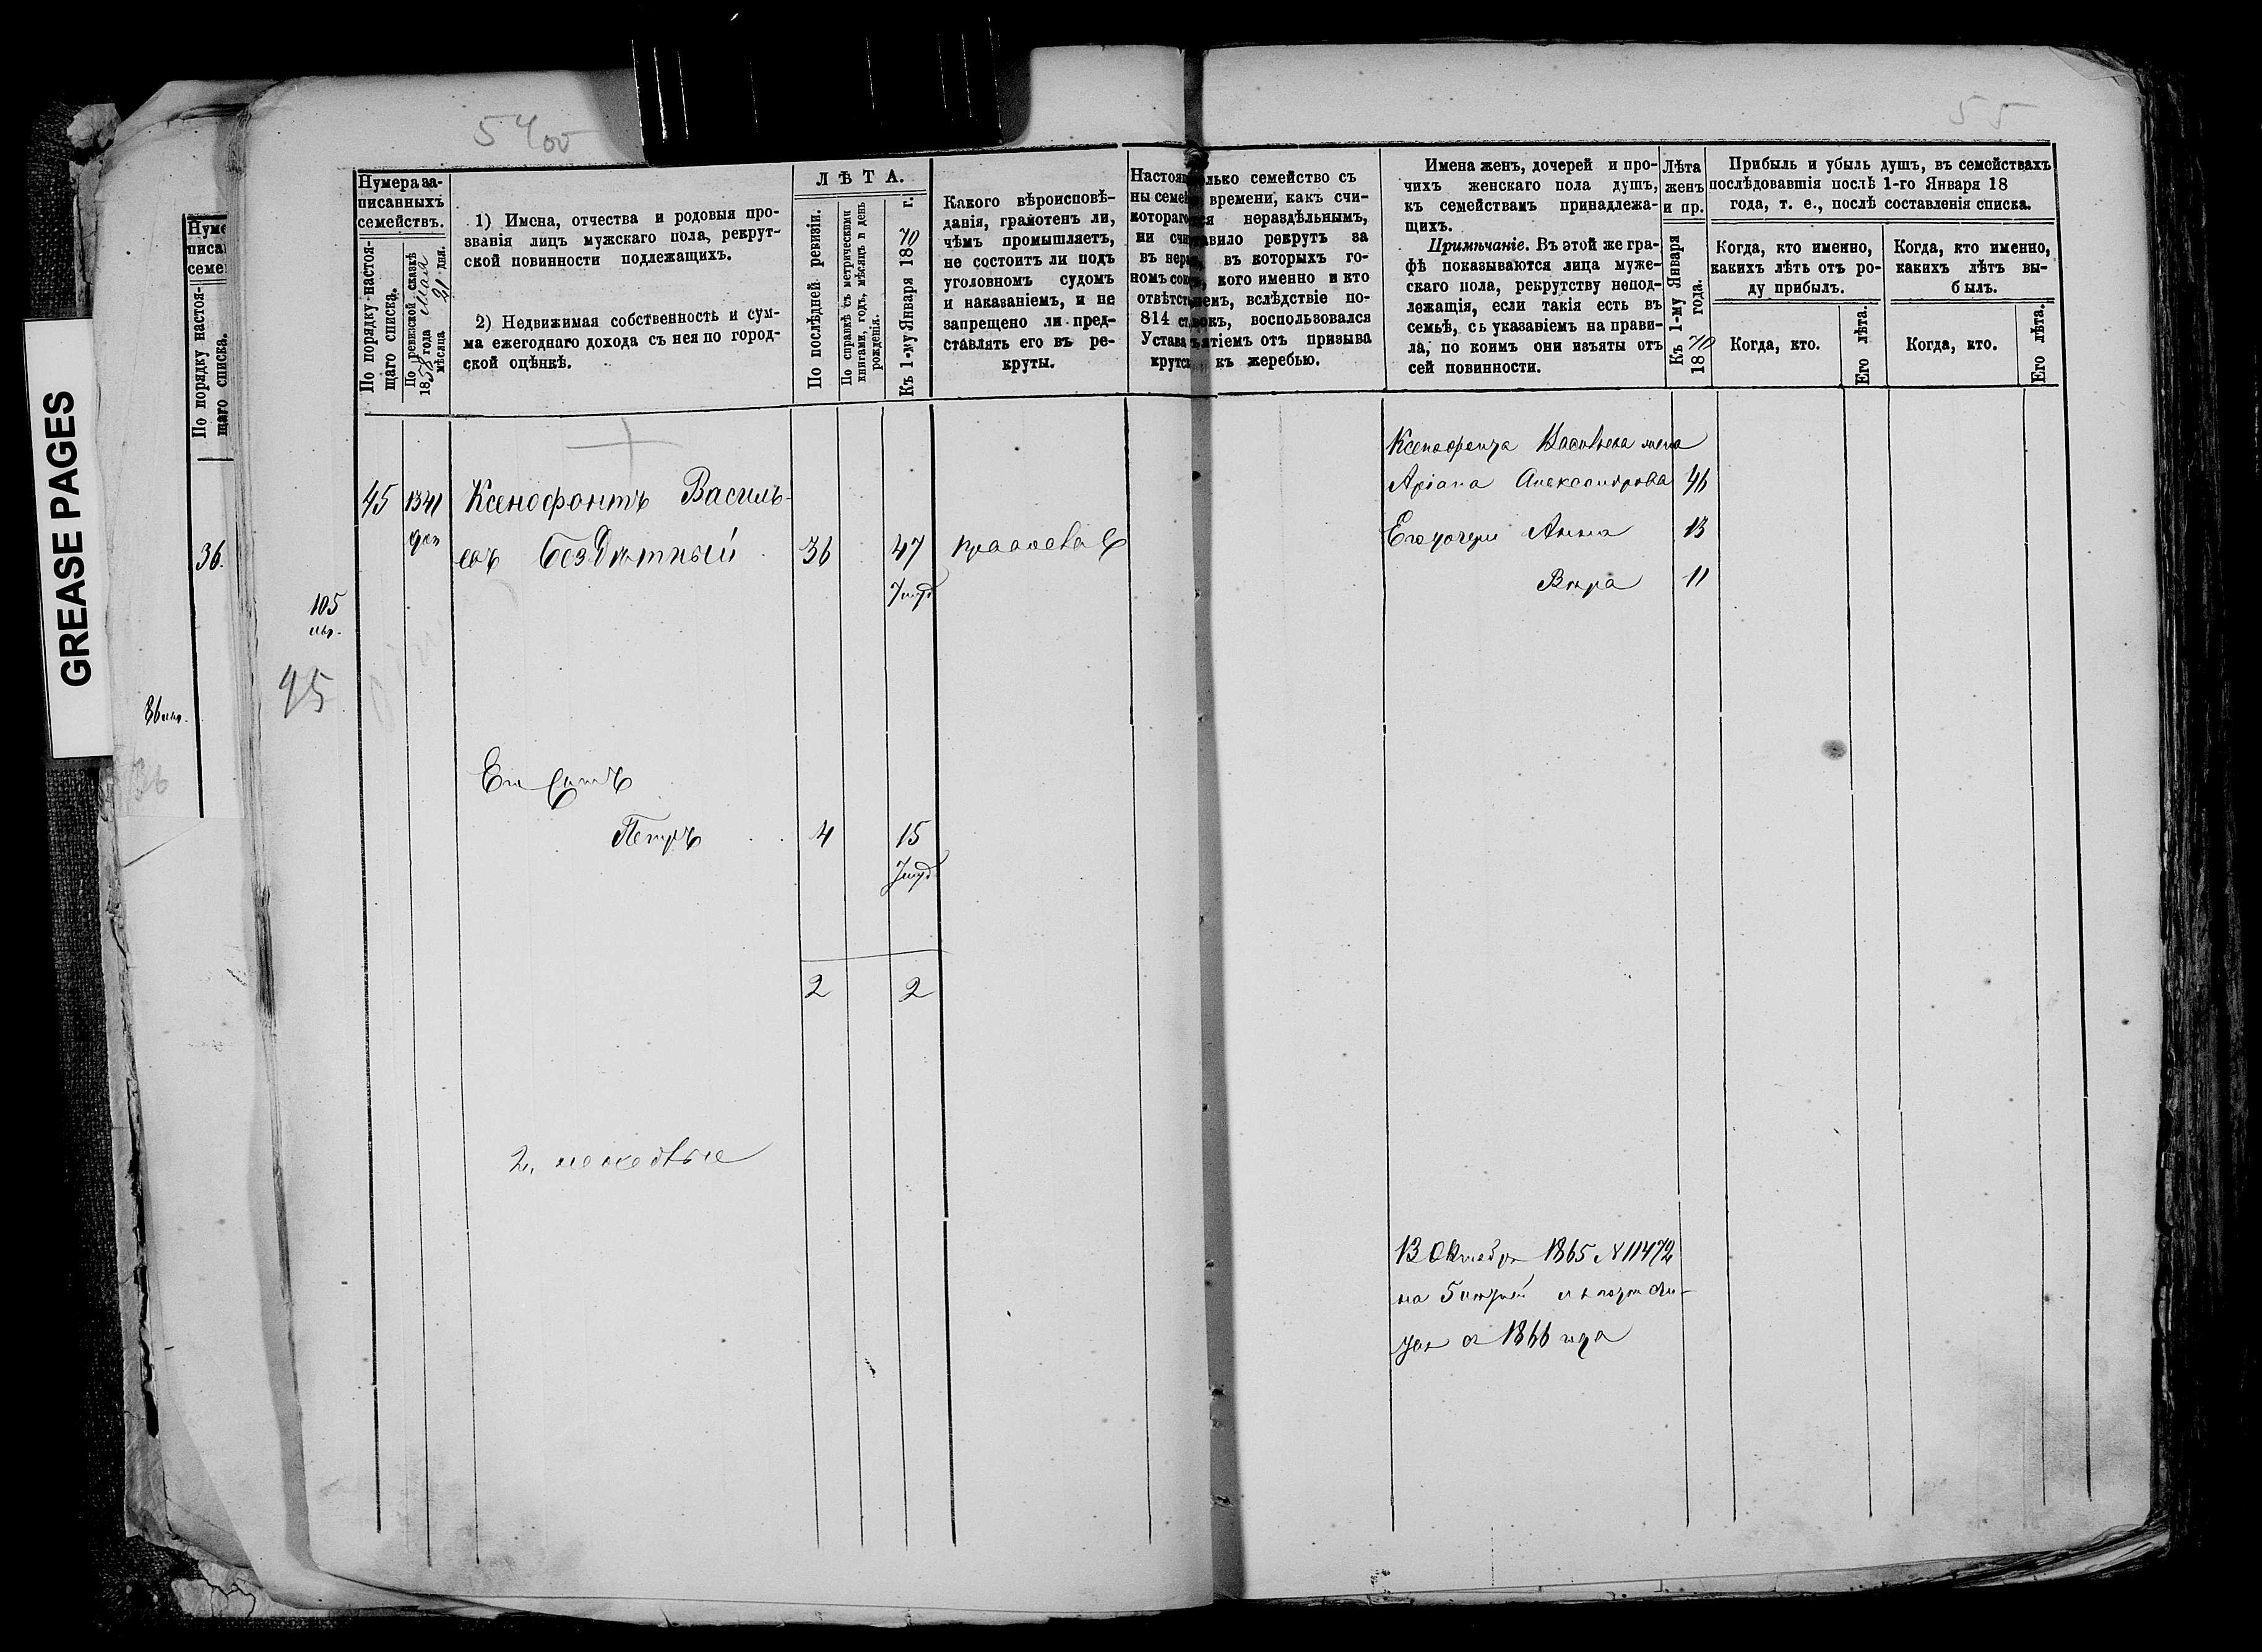 GREASE PAGES
36.
36
54
55
Нумера за-
писанныхъ
семействъ.
По порядку настоя-
щаго списка.
По ревизской сказкѣ
1858 года Мая
мѣсяца 21 дня.
1) Имена, отчества и родовыя про-
званія лицъ мужскаго пола, рекрут-
ской повинности подлежащихъ.
2) Недвижимая собственность и сум-
ма ежегоднаго дохода съ нея по город-
ской оцѣнкѣ.
ЛѢТА.
По послѣдней ревизіи.
По справкѣ съ метрическими
книгами, годъ, мѣсяцъ и день
рожденія.
Къ 1-му Января 1870 г.
Какого вѣроисповѣ-
данія, грамотенъ ли,
чѣмъ промышляетъ,
не состоитъ ли подъ
уголовномъ судомъ
и наказаніемъ, и не
запрещено ли пред-
ставлять его въ ре-
круты.
лько семейство съ
времени, какъ счи-
нераздѣльнымъ,
рекрутъ за
въ которыхъ го-
кого именно и кто
вслѣдствіе по-
814 воспользовался
Устава отъ призыва
къ жеребью.
Имена женъ, дочерей и про-
чихъ женскаго пола душъ,
къ семействамъ принадлежа-
щихъ.
Примѣчаніе. Въ этой же гра-
фѣ показываются лица муже-
скаго пола, рекрутству непод-
лежащія, если такія есть въ
семьѣ, съ указаніемъ на прави-
ла, по коимъ они изъяты отъ
сей повинности.
Лѣта
женъ
и пр.
Къ 1-му Января
1870 года.
Прибыль и убыль душъ, въ семействахъ
послѣдовавшія послѣ 1-го Января 18
года, т. е., послѣ составленія списка.
Когда, кто именно,
какихъ лѣтъ отъ ро-
ду прибылъ.
Когда, кто именно,
какихъ лѣтъ вы-
былъ.
Когда, кто.
Его лѣта.
Когда, кто.
Его лѣта.
45 1341 Ксенофонтъ Василь-
евъ Бездѣтный 36 47
105
45
Его сынъ
Петръ 4 15
2 2
Ксенофонта Васильева жена
Александрова 46
Его дочери Анна 13
Вѣра 11
13 Октября 1865 N 11472
на 5
1866 года